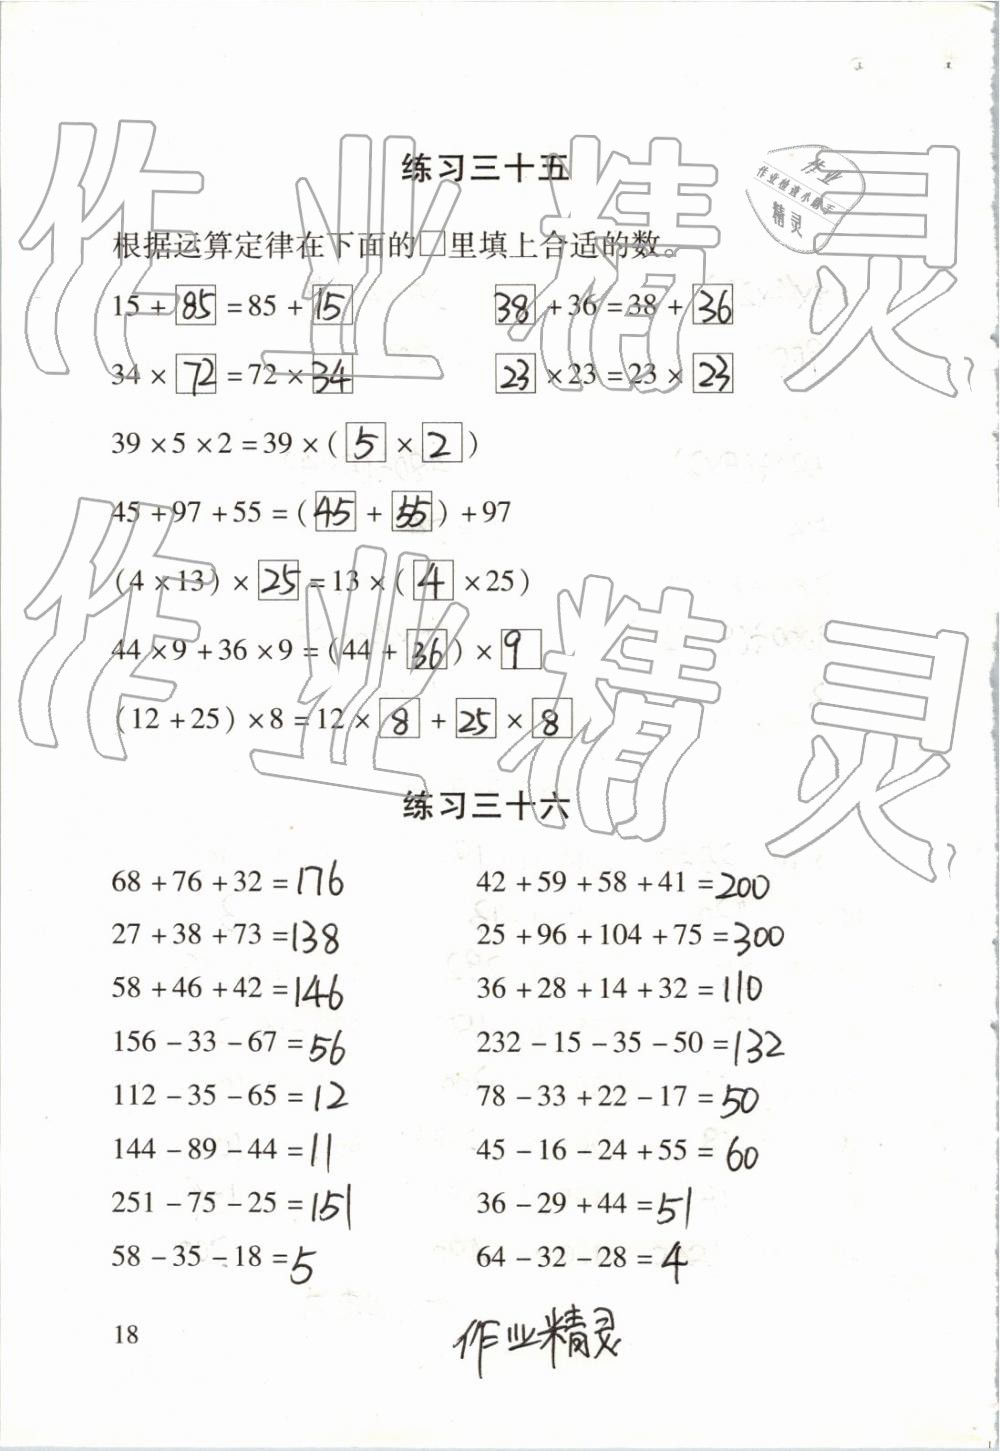 练习三十五
作业精灵
作业
作业检查小助手
精灵
根据运算定律在下面的□里填上合适的数。
15 + 85 = 85 + 15  38 + 36 = 38 + 36
34 × 72 = 72 × 34  23 × 23 = 23 × 23
39 × 5 × 2 = 39 × ( 5 × 2 )
45 + 97 + 55 = ( 45 + 55 ) + 97
(4 × 13) × 25 = 13 × ( 4 × 25)
作业精灵
44 × 9 + 36 × 9 = (44 + 36 ) × 9
(12 + 25) × 8 = 12 × 8 + 25 × 8
练习三十六
68 + 76 + 32 = 176  42 + 59 + 58 + 41 = 200
27 + 38 + 73 = 138  25 + 96 + 104 + 75 = 300
58 + 46 + 42 = 146  36 + 28 + 14 + 32 = 110
156 - 33 - 67 = 56  232 - 15 - 35 - 50 = 132
112 - 35 - 65 = 12  78 - 33 + 22 - 17 = 50
144 - 89 - 44 = 11  45 - 16 - 24 + 55 = 60
251 - 75 - 25 = 151  36 - 29 + 44 = 51
58 - 35 - 18 = 5  64 - 32 - 28 = 4
18
作业精灵